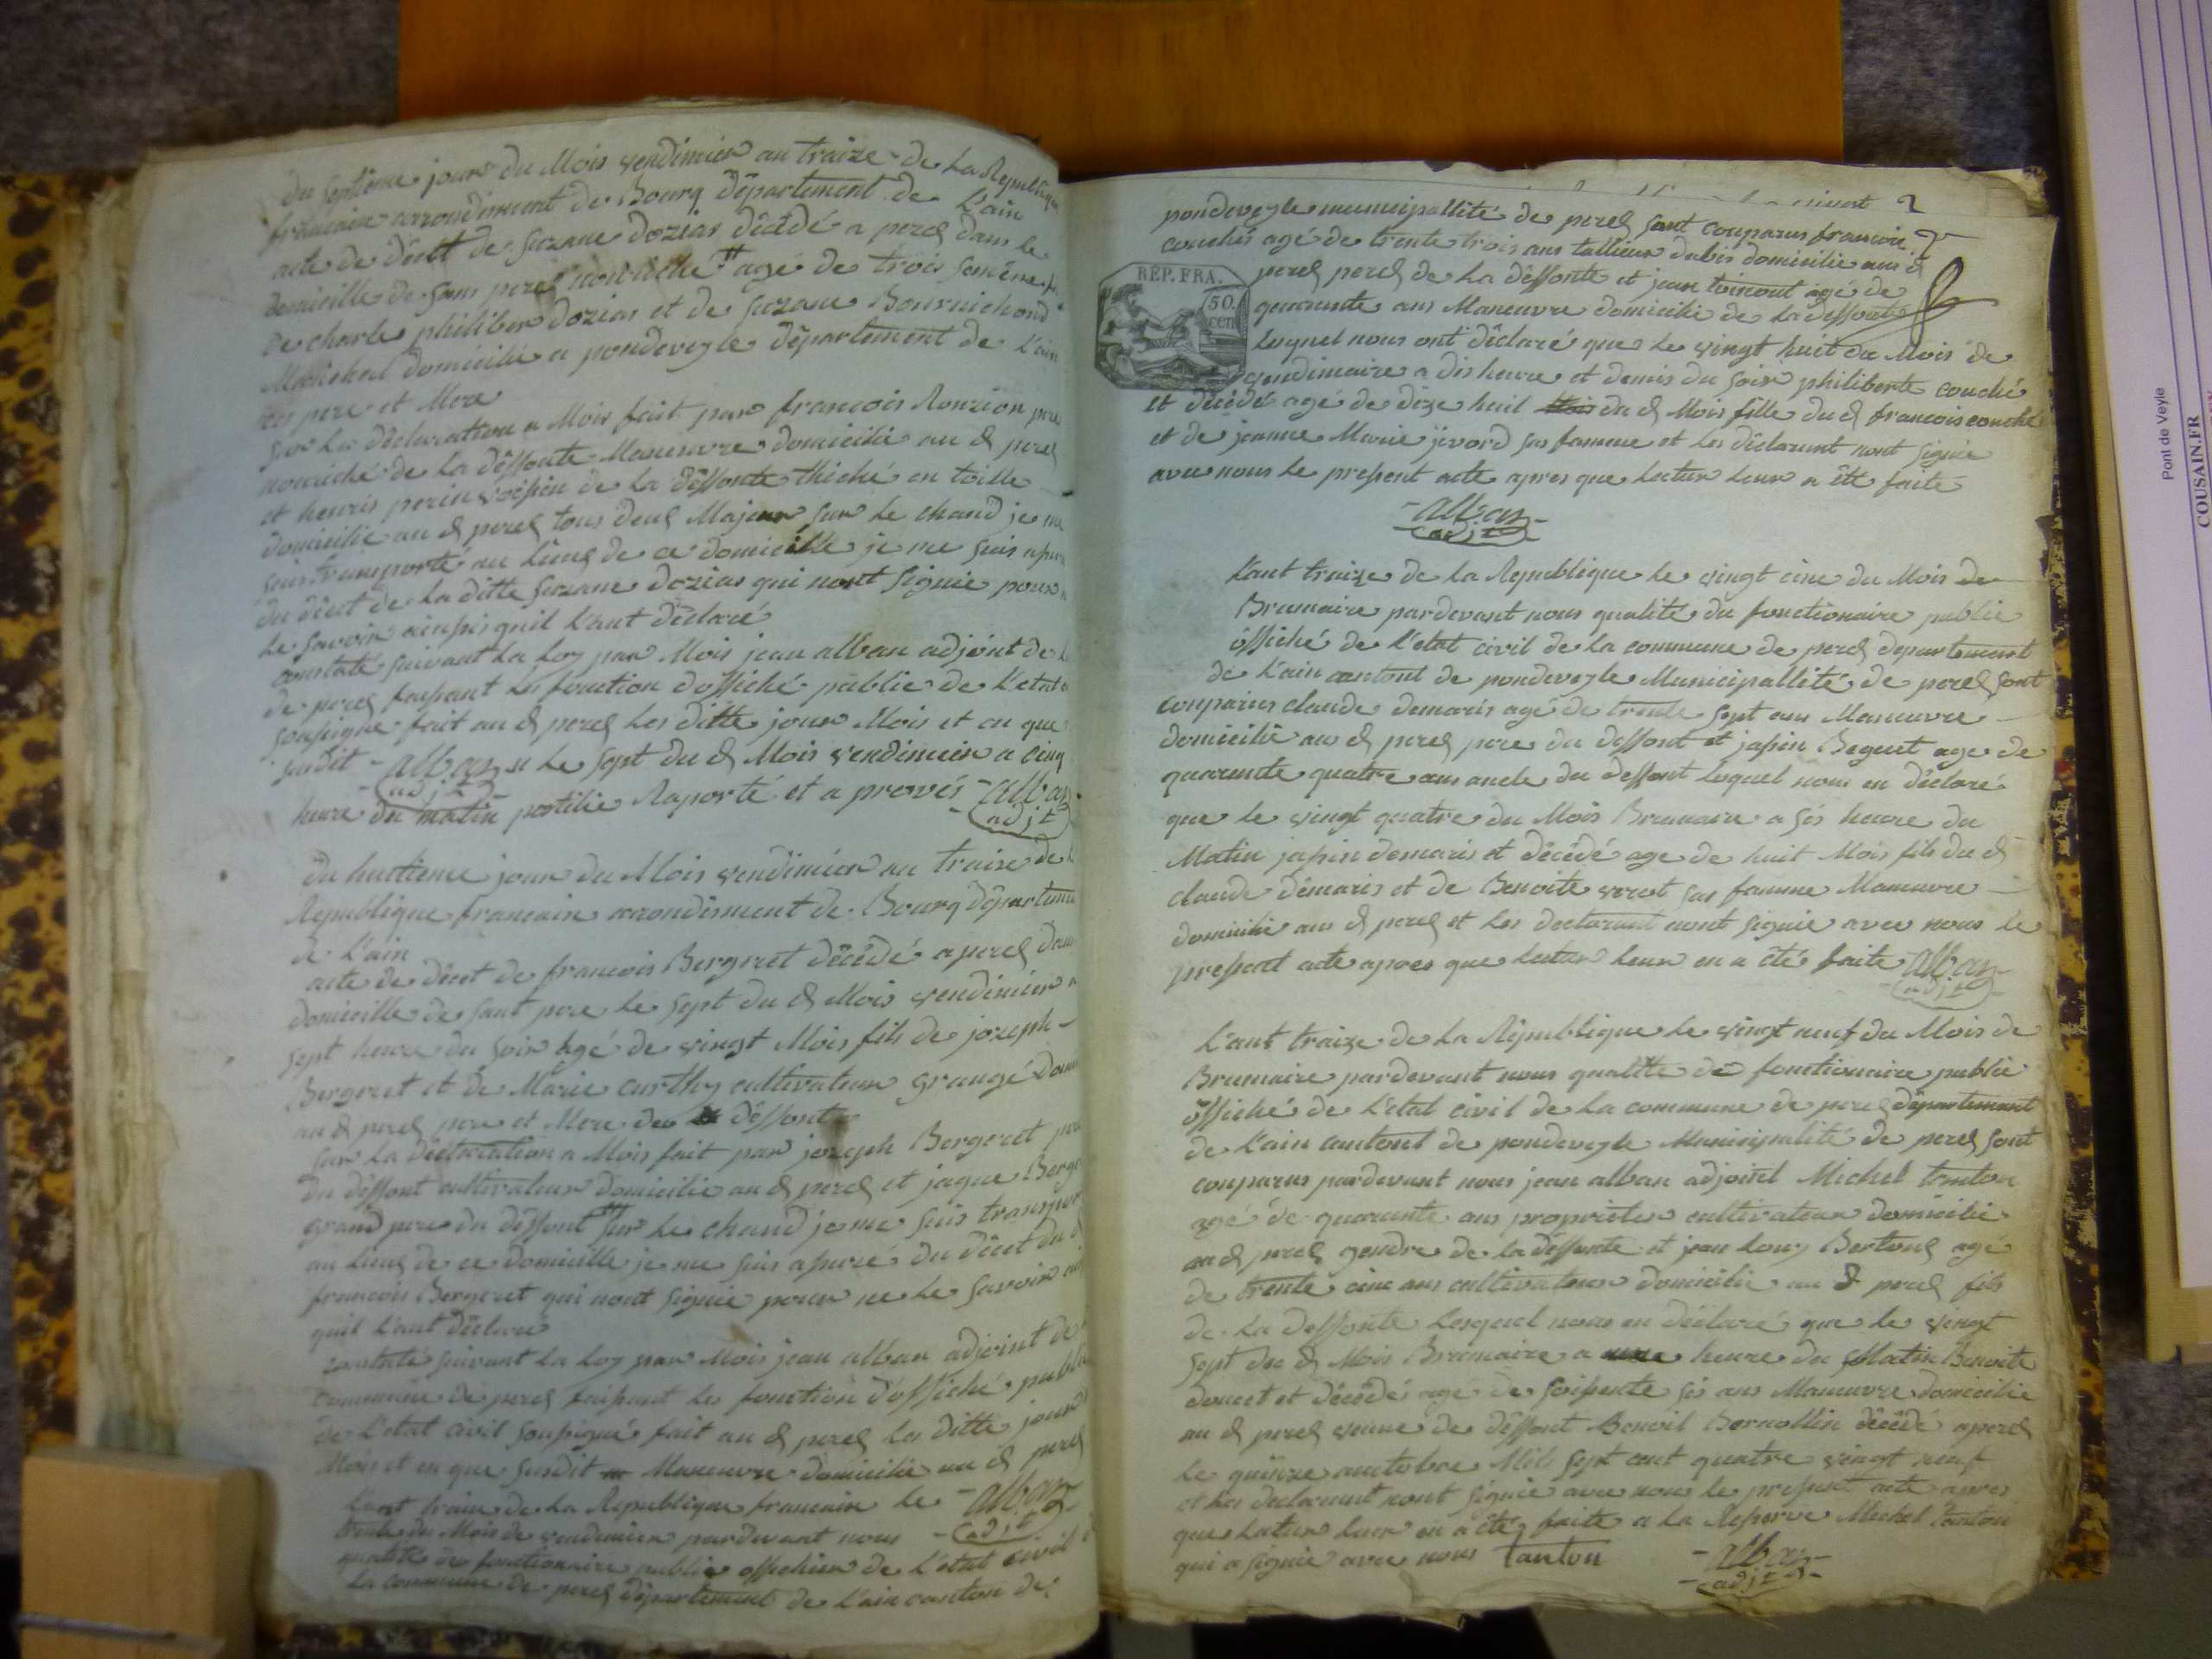 du septieme jour du Mois vendimier an traize de La Republique
francain arrondiment de Bourg département de L'ain
acte de décet de suzane dozias décédé a perex dans le
domicille de sont pere nouriché agé de trois semene
de charle philiber dozias et de suzane Bournichond
Marichal domicilié a pondeveyle département de L'ain
ses pere et Mere
sur La déclaration a Mois fait par francois Ronzion pere
nouriché de la déffonte Maneuvre domicilié au d perex
et henris perin voisin de la déffonte thiché en toille
domicilié au d perex tous deux Majeur sur le chand je me
suis transporté au lieux de ce domicille je me suis apuré
du décet de la ditte suzane dozias qui nont signie pour
le savoir ainsis quil l'ant déclaré
constaté suivant la loy par Mois jean alban adjoint de
de perex faisant les fonction d'offiché public de L'etat
soussigné fait au d perex les ditte jour Mois et an que
susdit - alban a le sept du d Mois vendimier a cinq
adjt
heure du matin postilie Raporté et a prouvés - alban
adjt
du huitieme jour du Mois vendimier an traize de
Republique francain arrondisment de Bourg départeme
de L'ain
acte de décet de francois Bergeret décédé a perex dans
domicille de sont pere le sept du d Mois vendimier a
sept heure du soir agé de vingt Mois fils de joseph
Bergeret et de Marie curthy cultivateur grangé dom
au d perex pere et Mere du déffont
sur La déclaration a Mois fait par joseph Bergeret pere
du déffont cultivateur domicilié au d perex et jaque Berge
grand pere du déffont sur le chand je me suis transpor
au lieux de ce domicille je me suis apuré du décet du d
francois Bergeret qui nont signie pour ne le savoir
quil l'ant déclaré
constaté suivant la loy par Mois jean alban adjoint de
commune de perex faisant les fonction d'offiché public
de L'etat civil soussigné fait au d perex les ditte jour
Mois et en que susdit Maneuvre domicilié au d perex
L'ant traize de la Republique francain le - alban
adjt
trente du Mois de vendimier pardevant nous
qualité de fonctionaire public offichier de L'etat civil
La commune de perex département de L'ain canton de
pondeveyle municipallité de perex sont conparus francois
couchés agé de trente trois ans tallieur dabis domicilié aux d
REP. FRA.
50
cen
perex perex de la déffonte et jean toinont agé de
quarante ans Maneuvre domicilié de la deffonte
Lequel nous ont déclaré que le vingt huit du Mois de
vendimaire a dis heure et demis du soir philiberte couché
et décédé agé de dize huit du d Mois fille du d francois couché
et de jeanne Marie jevord sas famme et les déclarant nont signie
avec nous le present acte apres que lectur leur a été faite
- alban -
adjt
L'ant traize de la Republique le vingt cinc du Mois de
Brumaire pardevant nous qualité du fonctionaire public
offiché de L'etat civil de la commune de perex departement
de L'ain cantont de pondeveyle Municipallité de perex sont
conparus claude demaris agé de trente sept ans Maneuvre
domicilié au d perex pere du deffont et japin Beguet age de
quarente quatre ans oncle du deffont Lequel nous en déclaré
que le vingt quatre du Mois Brumaire a sis heure du
Matin japin demaris et décédé age de huit Mois fils du d
claude démaris et de Benoite verot sas famme Maneuvre
domicilié aus d perex et les declarant nont signie avec nous le
present acte apres que lectur leur en a été faite alban
adjt
L'ant traize de la République le vingt neuf du Mois de
Brumaire pardevant nous qualité de fonctionaire public
offiché de L'etat civil de la commune de perex département
de L'ain cantont de pondeveyle Municipalité de perex sont
conparus pardevant nous jean alban adjoitel Michel tonton
agé de quarante ans proprieter cultivateur domicilié
au d perex gendre de la deffonte et jean Louy Bertoux agé
de trente cinc ans cultivateur domicilié au d perex fils
de la deffonte Lesquel nous en déclaré que le vingt
sept du d Mois Brumaire a une heure du Matin Benoite
doucet et décédé age de soissente sis ans Maneuvre domicilié
au d perex veuve de déffont Benoit Bernollin décédé a perex
le quinze auctobre Mile sept cent quatre vingt neuf
et les declarant nont signie avec nous le present acte apres
que lectur leur en a été faite a la Reserve Michel tanton
qui a signie avec nous tanton - alban -
- adjt -
Pont de Veyle
COUSAIN.FR